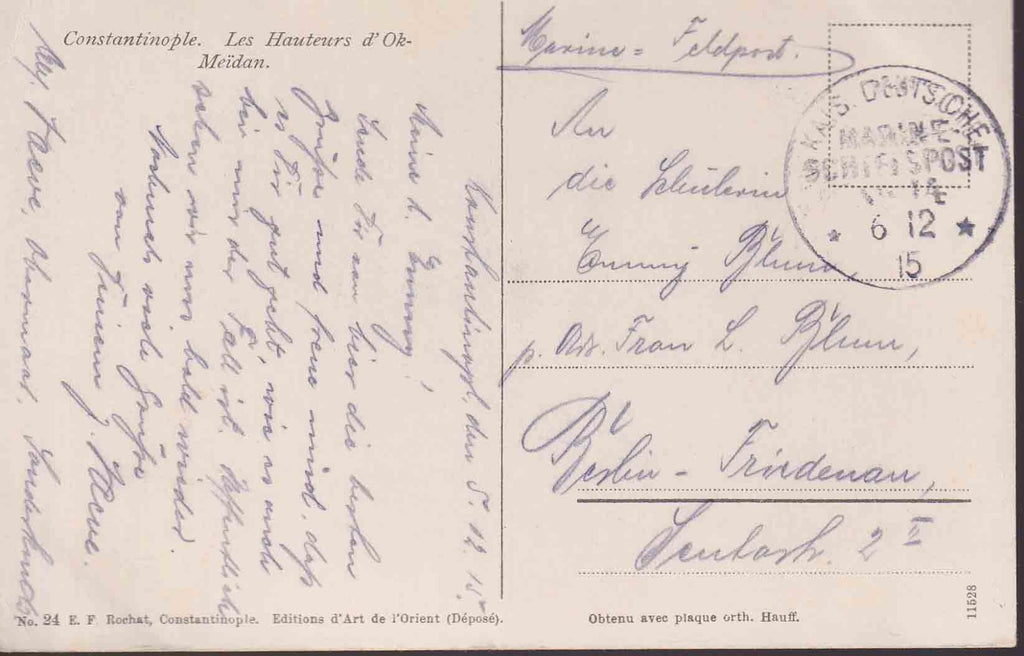 Constantinople. Les Hauteurs d'Ok-
Meïdan.
Constantinopel, den 5. 12. 15.
Meine l. Emmy!
Sende Dir von hier die besten
Grüße und freue mich, daß
es Dir gut geht, wie es auch
bei mir der Fall ist. Hoffentlich
sehen wir uns bald wieder.
Nochmals viele Grüße
von Deinem
Obermaat,
Marine-Feldpost.
An
die Schülerin
Emmy Blum,
p. Adr. Frau L. Blum,
Berlin-Friedenau,
2 II
KAIS. DEUTSCHE
MARINE-
SCHIFFSPOST
14
* 6 12 *
15
No. 24 E. F. Rochat, Constantinople. Editions d'Art de l'Orient (Déposé).
Obtenu avec plaque orth. Hauff.
11528